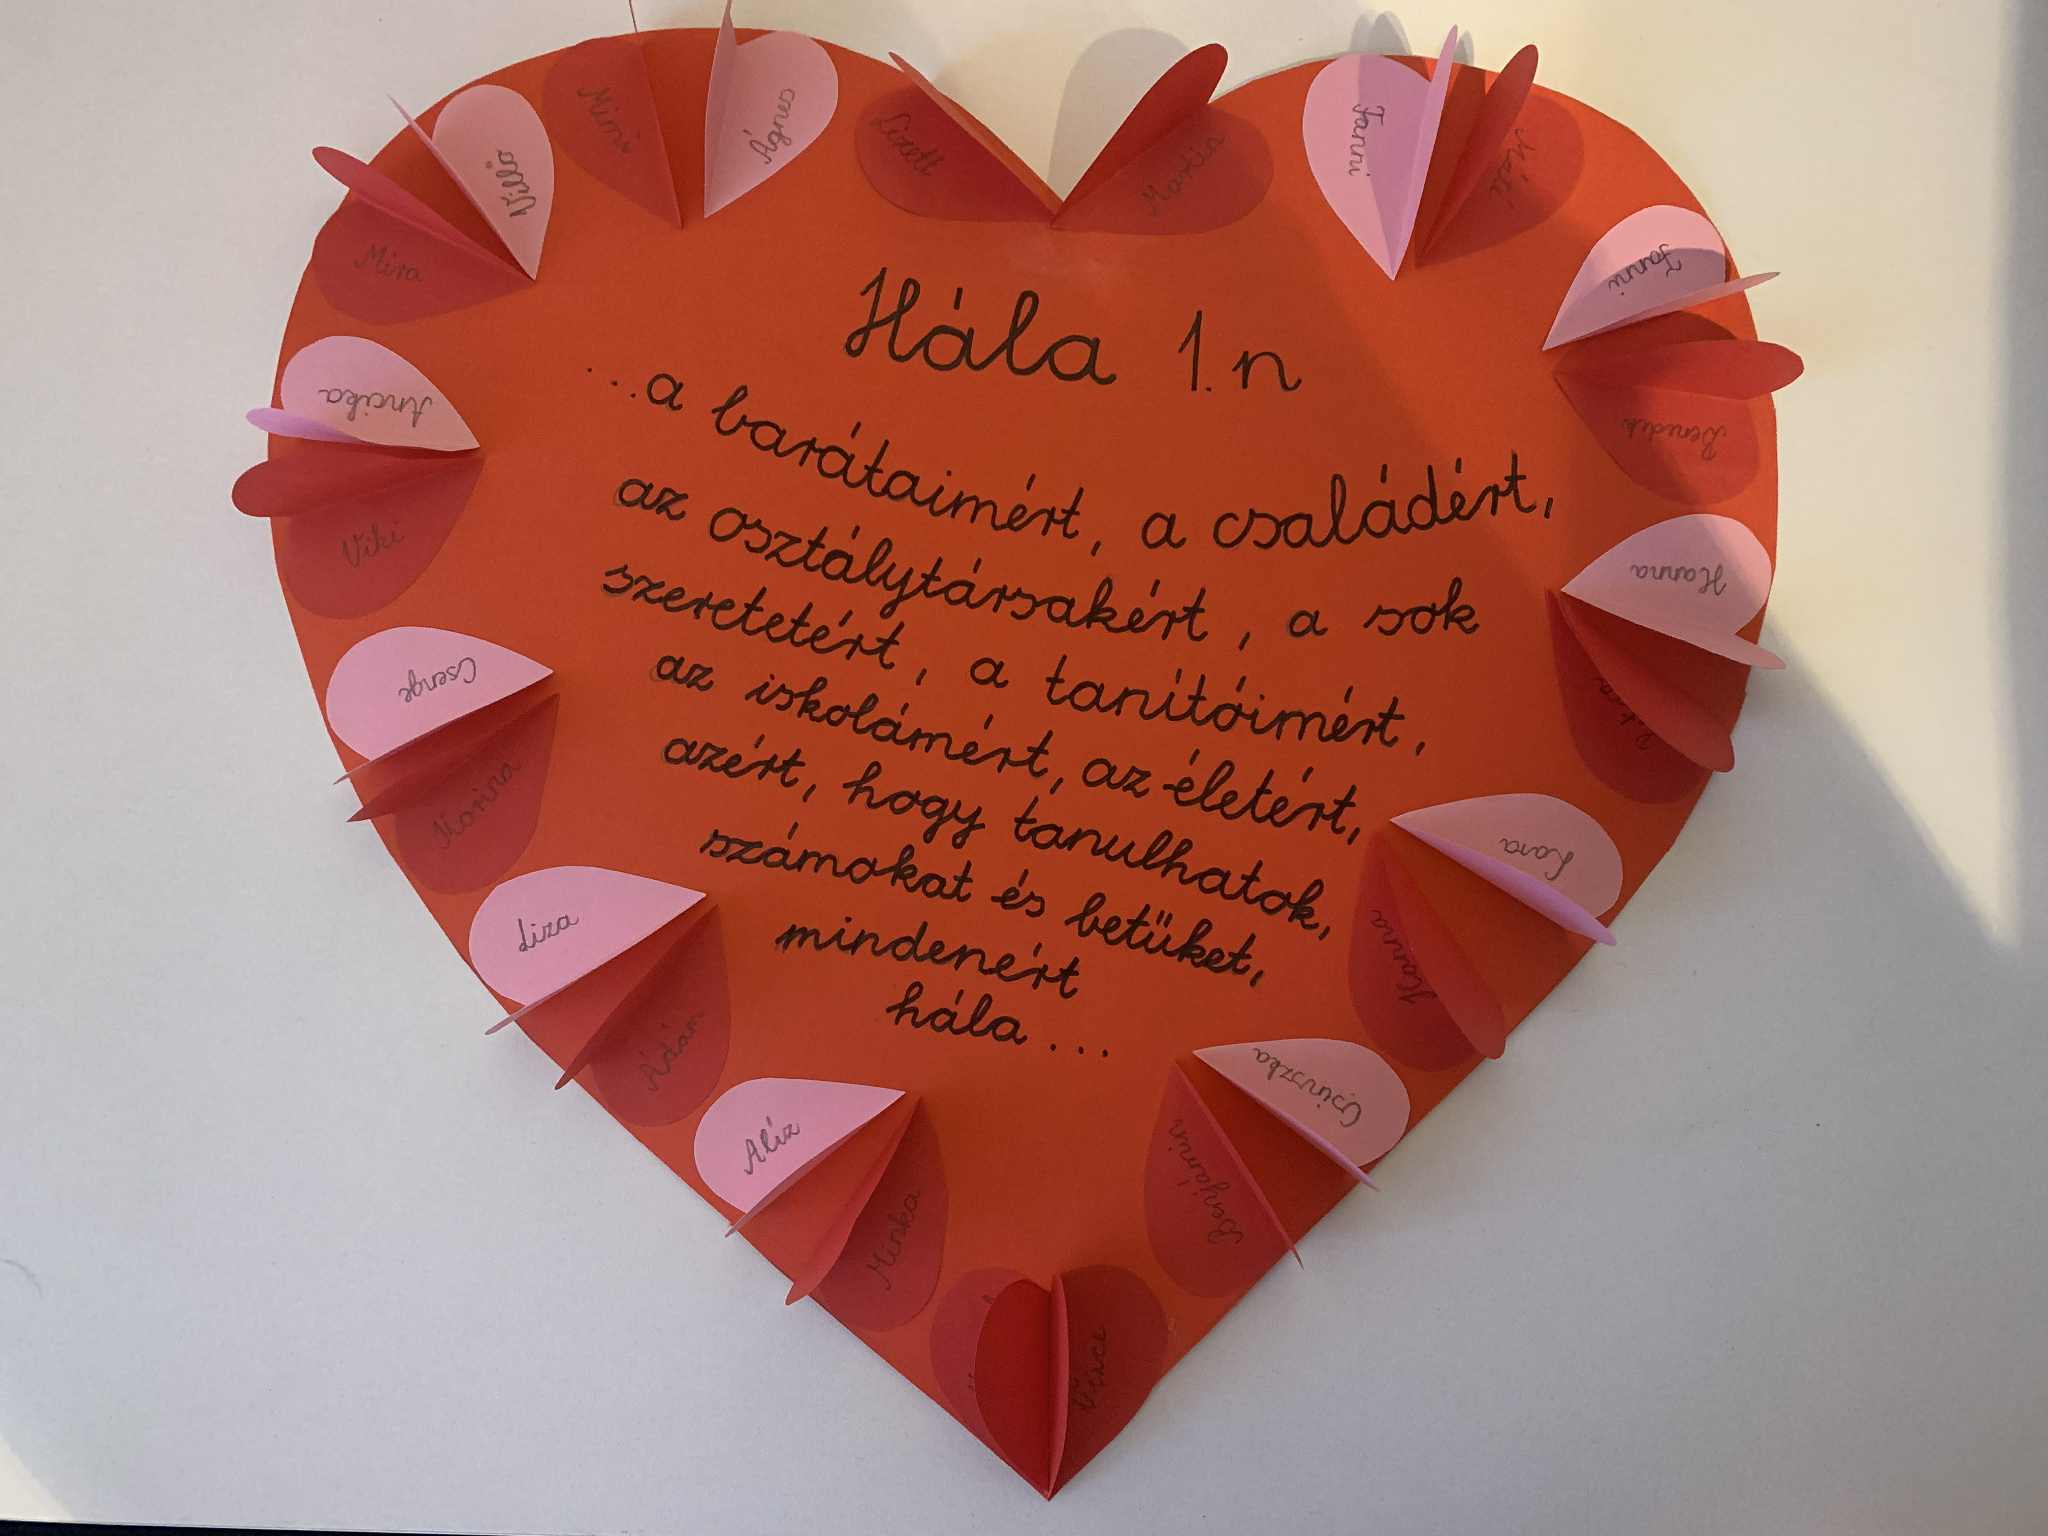 Hála 1.n
...a barátaimért, a családért,
az osztálytársakért, a sok
szeretetért, a tanítóimért,
az iskolámért, az életért,
azért, hogy tanulhatok,
számokat és betűket,
mindenért
hála...
Mimi
Ágnes
Lizett
Martin
Fanni
Máté
Fanni
Benedek
Hanna
Lara
Hanna
Csinszka
Benjámin
Vince
Minka
Alíz
Ádám
Liza
Korina
Csenge
Viki
Ancika
Mira